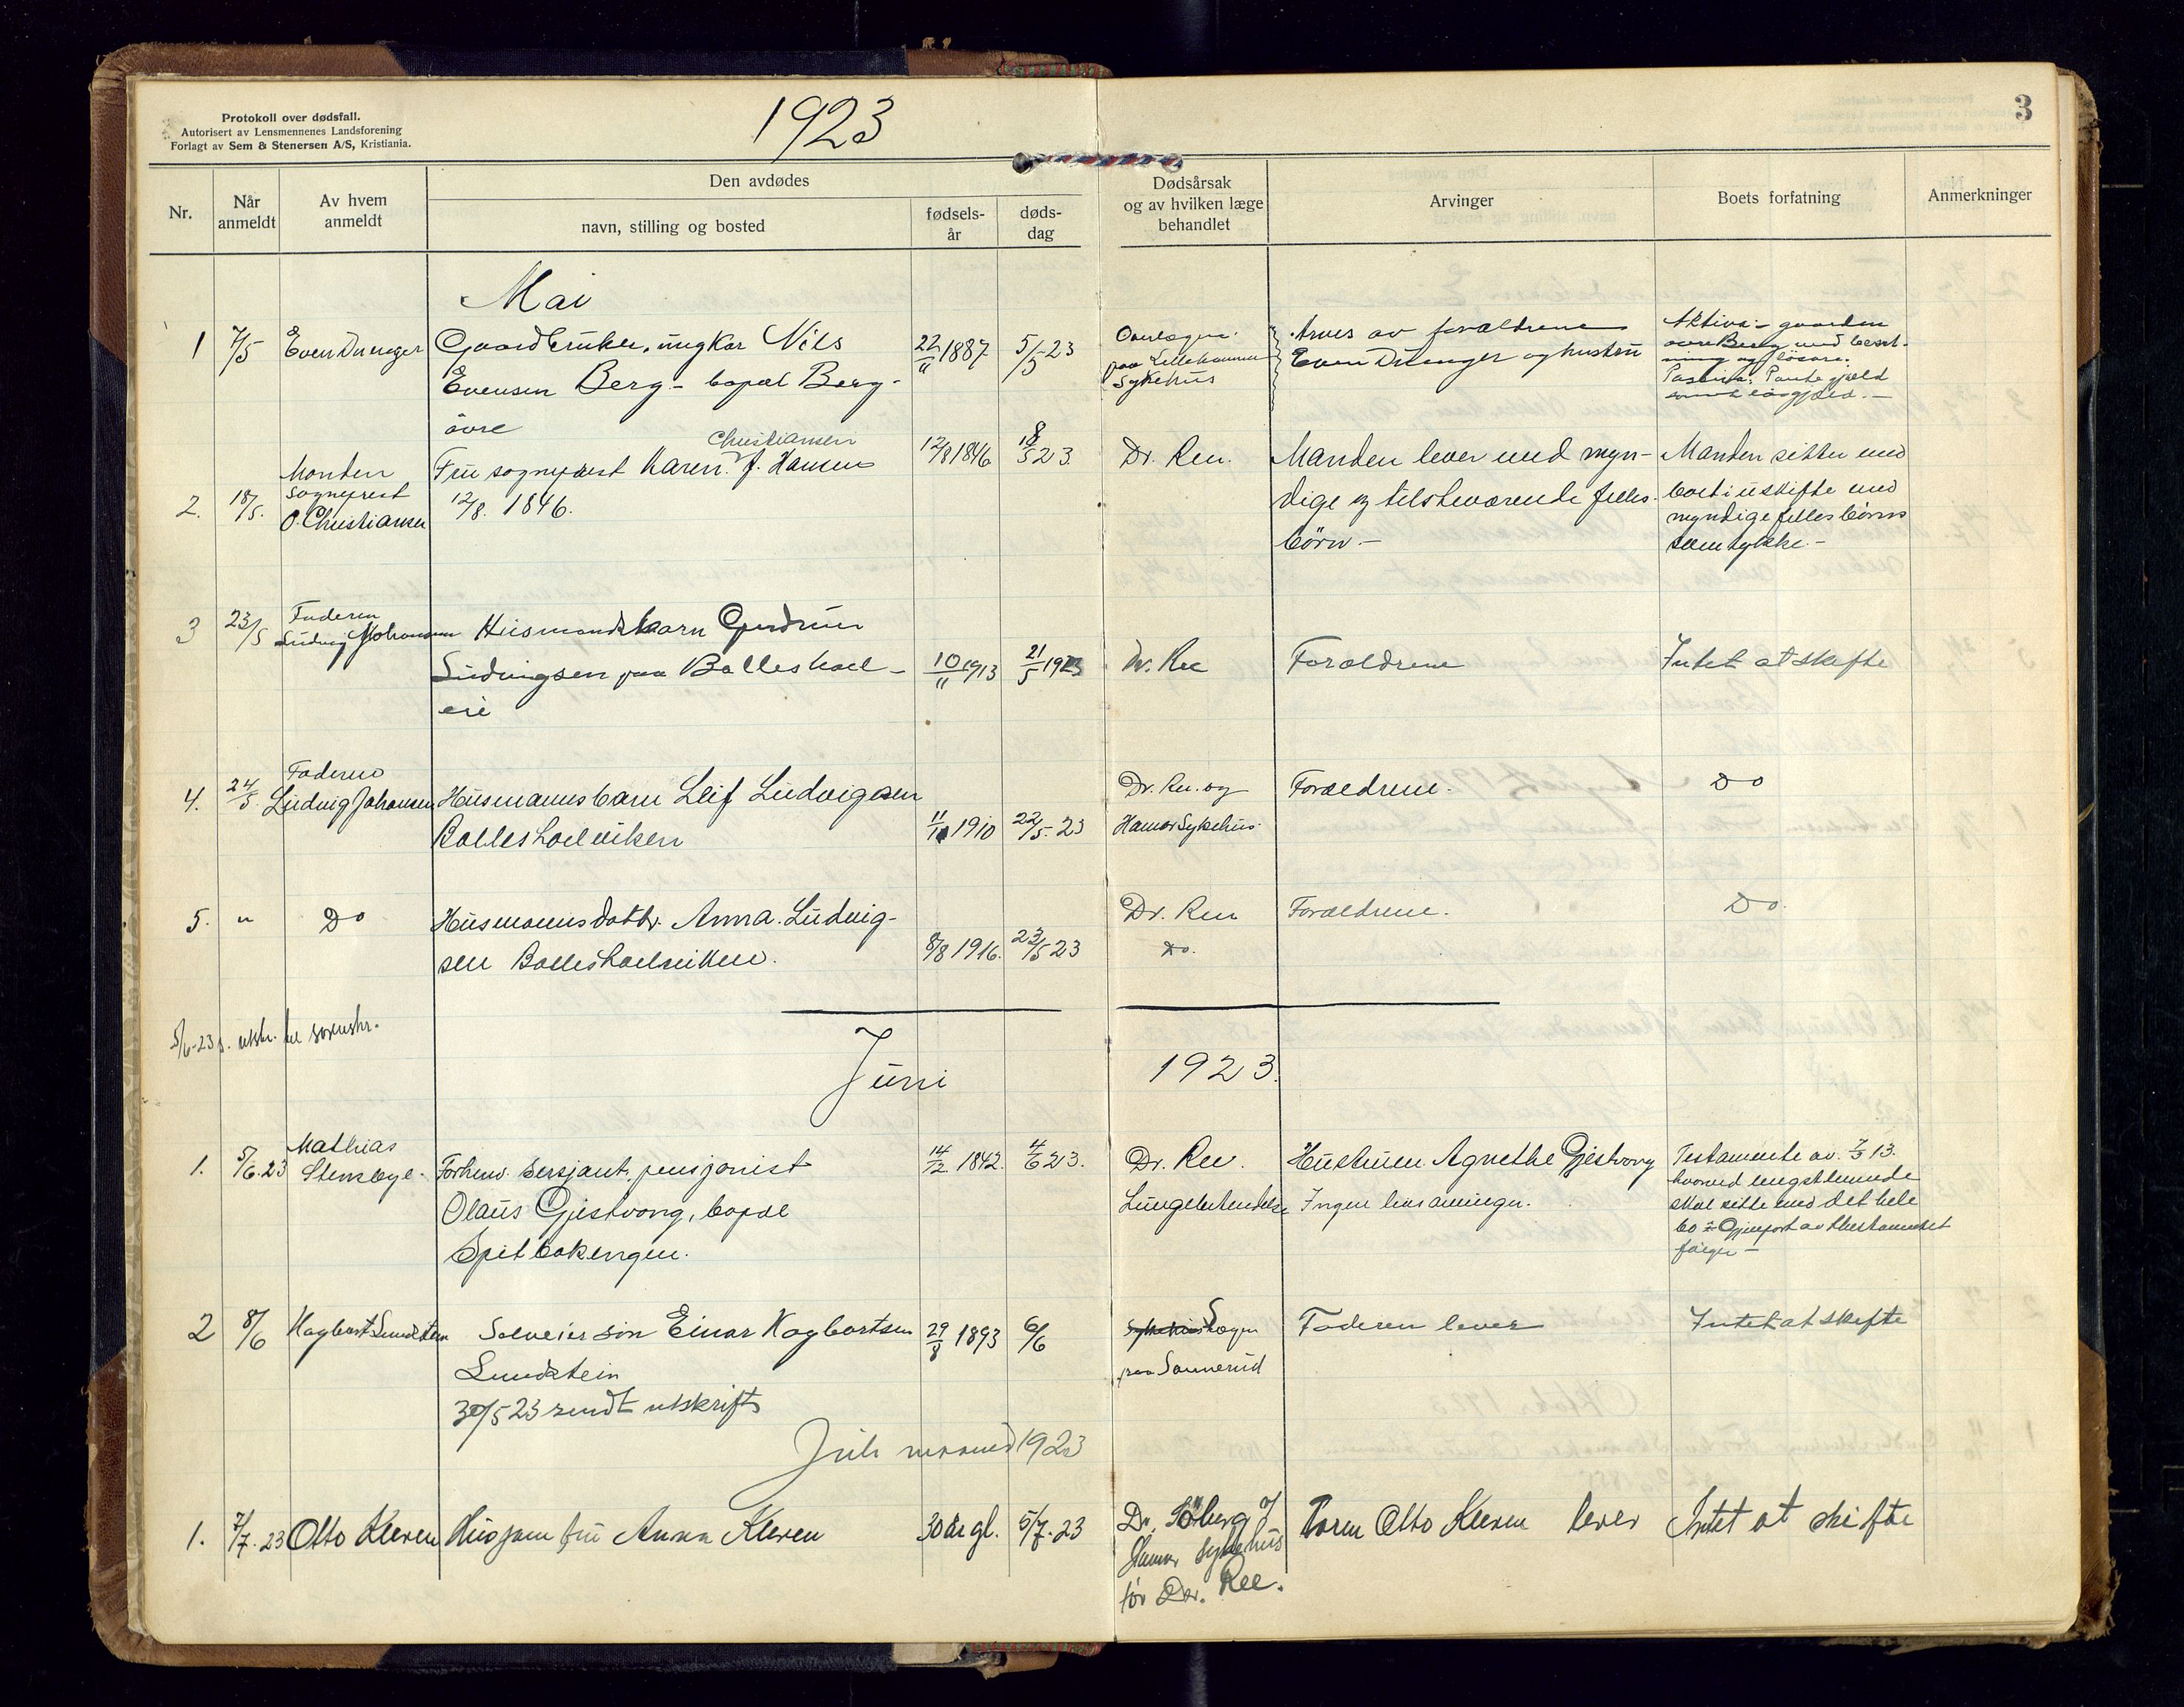 Protokoll over dødsfall.
Autorisert av Lensmennenes Landsforening
Forlagt av Sem & Stenersen A/S, Kristiania.
1923
3
Nr.
Når anmeldt
Av hvem anmeldt
Den avdødes
navn, stilling og bosted
fødsels-år
døds-dag
Dødsårsak
og av hvilken læge
behandlet
Arvinger
Boets forfatning
Anmerkninger
Mai
1 7/5 Even Dunger Gaardbruker, ungkar Nils 22/11 1887 5/5-23
Evensen Berg - bopæl Berg-
övre
Overlægen
paa Lillehammer
Sykehus
Arves av forældrene
Even Dunger og hustru
Aktiva:- gaarden
övre Berg med besæt-
ning og lösöre.
Passiva: Pantegjæld
samt lösgjæld.-
2. 18/5. Manden
sogneprest
O. Christiansen
Christiansen
Fru sogneprest Karen J. Hansen 12/8 1846 18/5 23.
12/8. 1846.
Dr. Ree.
Manden lever med myn-
dige og tilsteværende felles-
börn.-
Manden sitter med
boet i uskifte med
myndige felles börns
samtykke.-
3 23/5 Faderen
Ludvig Johansen Husmandsbarn Gudrun
Ludvigsen paa Balleshoel- 10/11 1913 21/5 1923
eie
Dr. Ree
Forældrene
Intet at skifte
4. 24/5. Faderen
Ludvig Johansen Husmannsbarn Leif Ludvigsen
Balleshoelviken 11/10 1910 22/5-23
Dr. Ree. og
Hamar Sykehus.
Forældrene.
Do
5. " Do Husmannsdattr. Anna Ludvig-
sen Balleshoelviken. 8/8 1916. 23/5 23
Dr. Ree
Do.
Forældrene.
Do.
5/6-23 s. utskr. til sorenskr.
Juni 1923.
1. 5/6.23 Mathias
Stensbye. Forhenv. Sersjant, pensjonist 14/12 1842. 4/6 23.
Olaus Gjestvang, bopæl
Spitbakengen.
Dr. Ree.
Lungebetendelse
Hustruen Agnethe Gjestvang
Ingen livsarvinger.
Testamente av 7/3 13.
hvorved lengstlevende
skal sitte med det hele
bo - Gjenpart av testamentet
følger -
2 8/6 Hagbart Lundstein Selveiersön Einar Hagbartsen 29/8 1893 6/6
Lundstein
30/5 23 sendt utskrift
Lægen
paa Sannerud
Faderen lever
Intet at skifte
Juli maaned 1923
1. 7/7.23 Otto Kleven Husjomfru Anna Kleven 30 år gl. 5/7-23
Dr. Söberg
Hamar Sykehus
för Dr. Ree.
Faren Otto Kleven lever
Intet at skifte